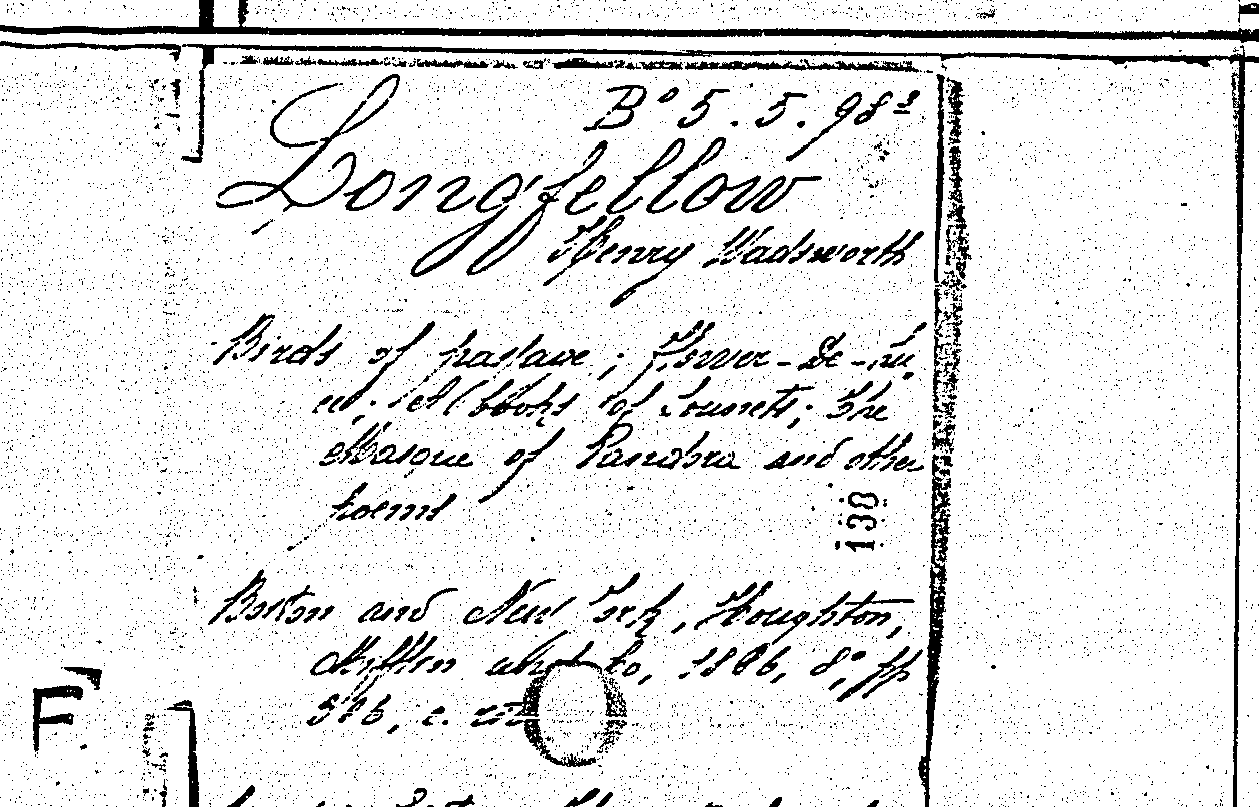 B° 5. 5. 98²
Longfellow
Henry Wadsworth
Birds of passage; Flower-De-Lu
ce; A book of Sonnets; The
Masque of Pandora and other
poems
138
Boston and New York, Houghton,
Mifflin and Co, 1886, 8°, pp
c.
F